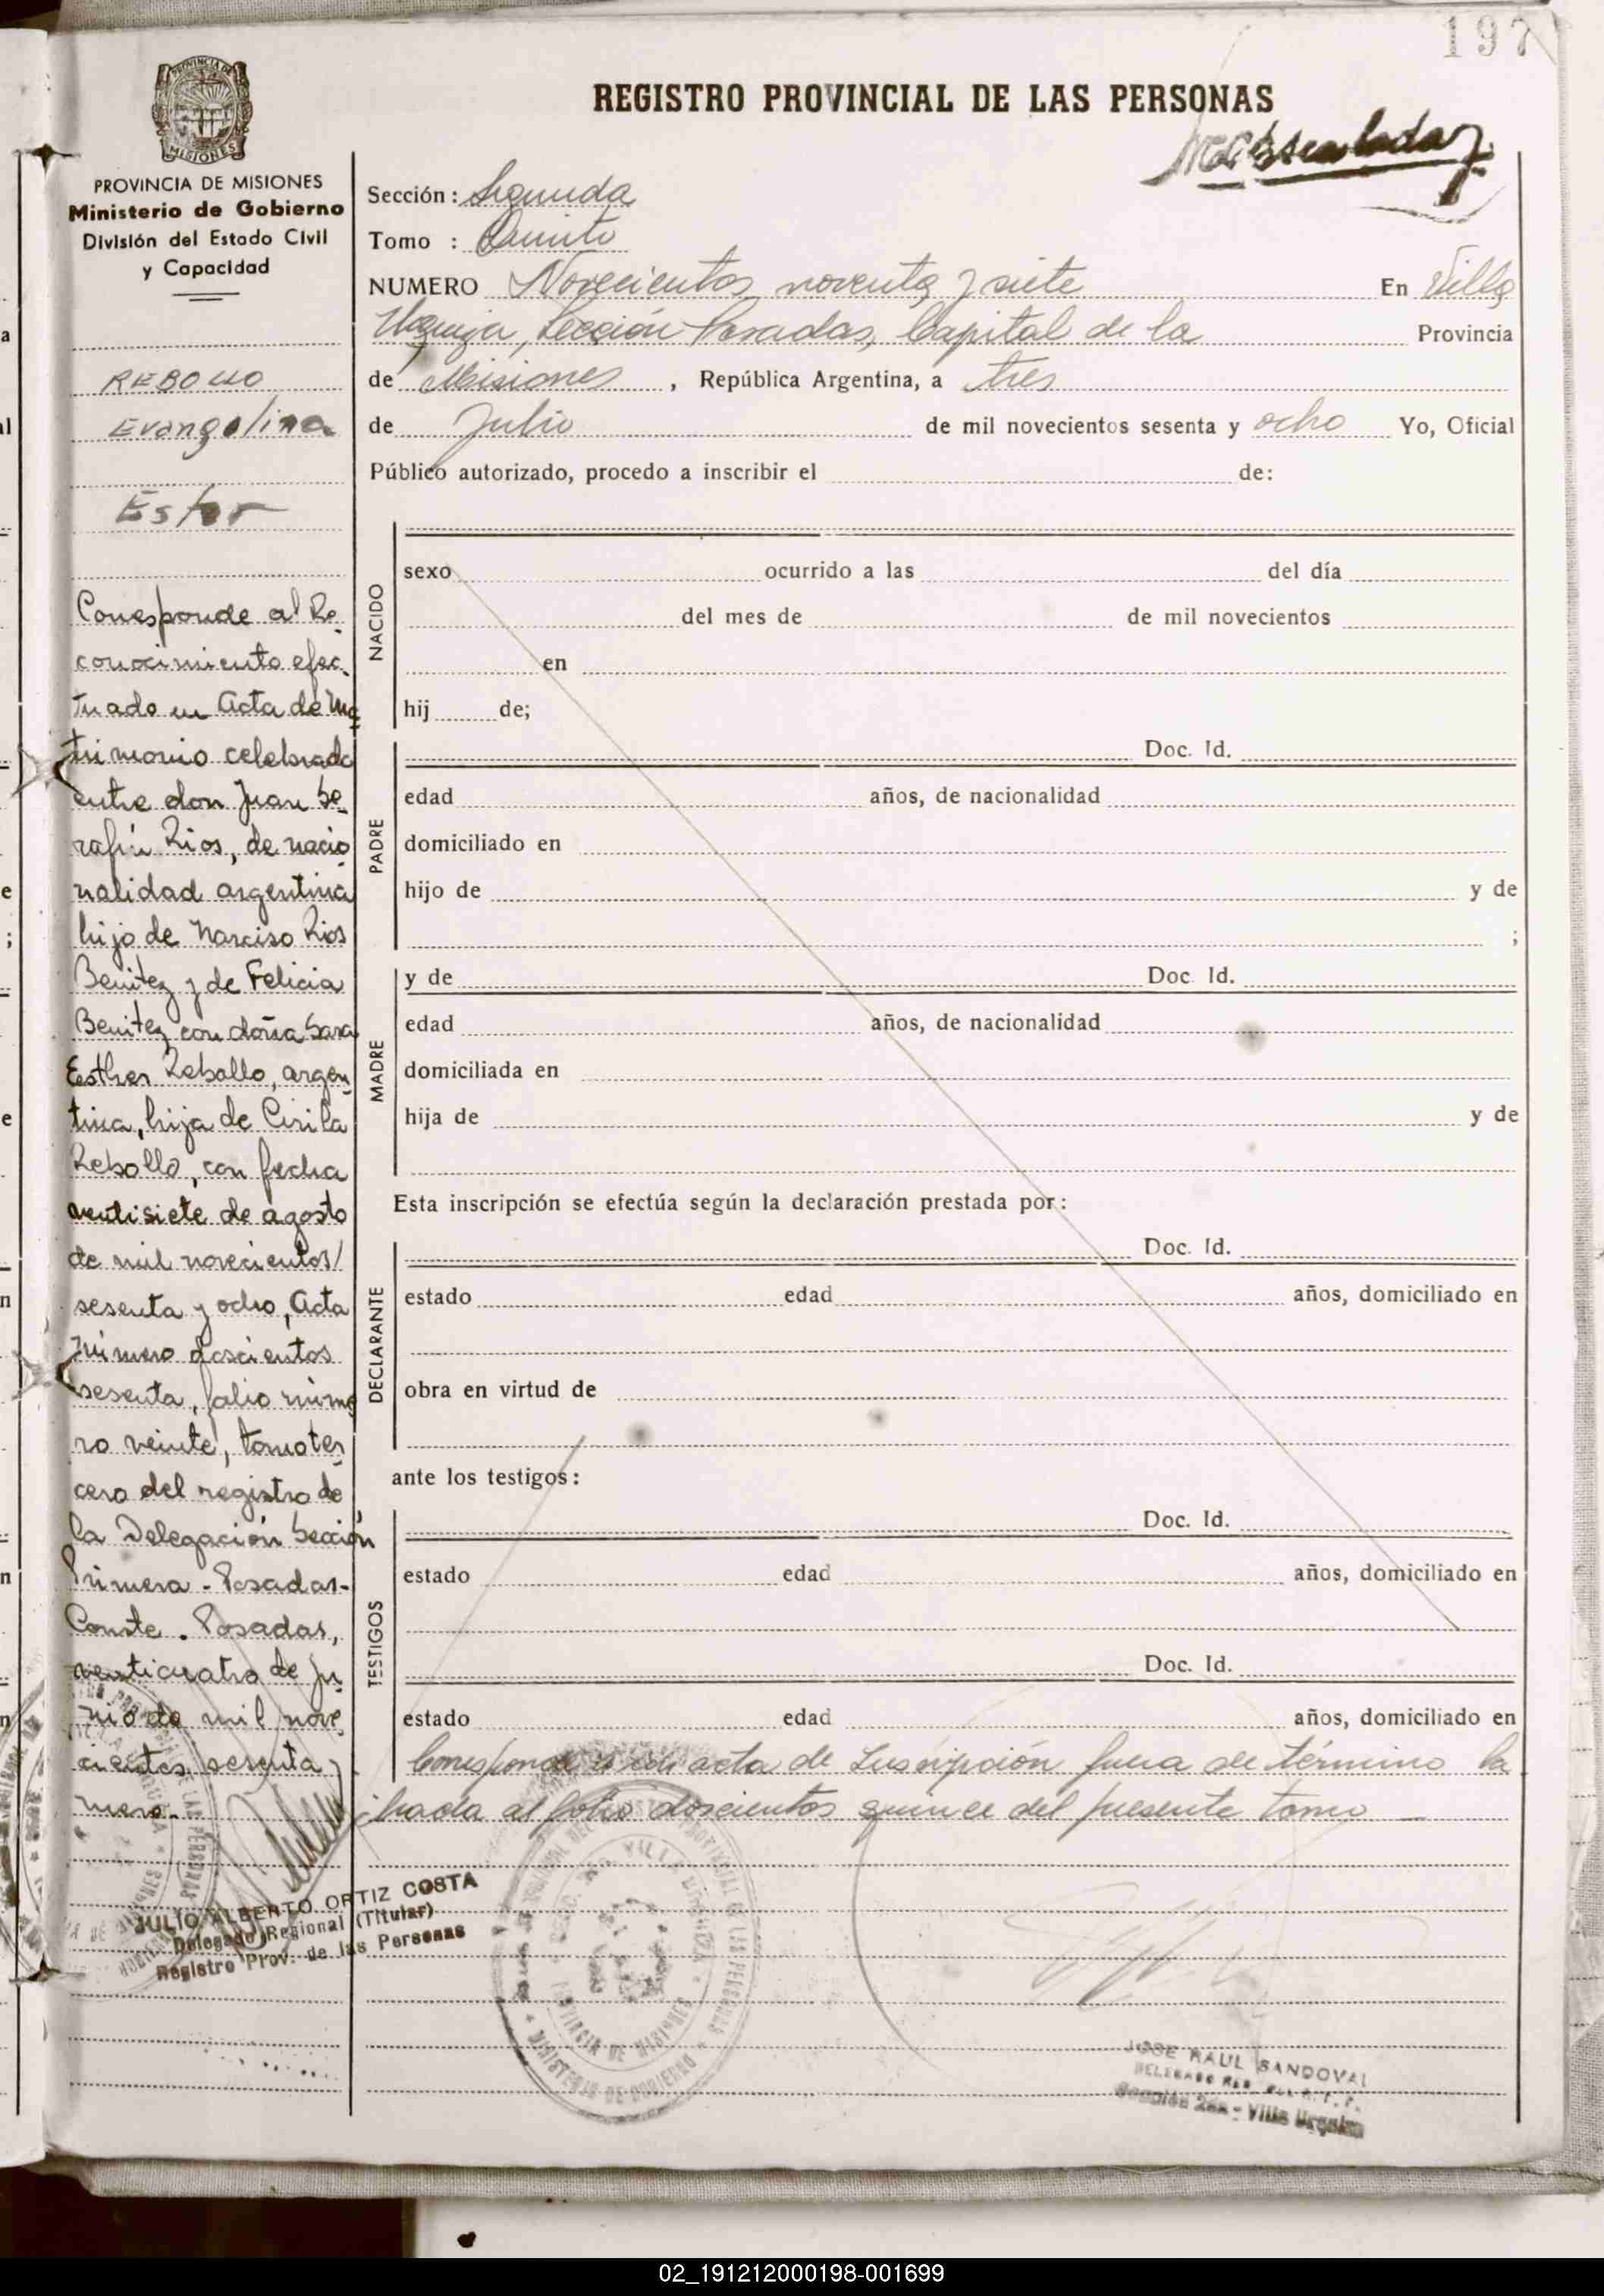 197
REGISTRO PROVINCIAL DE LAS PERSONAS
PROVINCIA DE
MISIONES
PROVINCIA DE MISIONES
Ministerio de Gobierno
División del Estado Civil
y Capacidad
REBOLLO
Evangelina
Ester
Corresponde al Re_
conocimiento efec_
tuado en Acta de Ma
trimonio celebrado
entre don Juan Se_
rafín Rios, de nacio
nalidad argentina
hijo de Narciso Rios
Benitez y de Felicia
Benitez con doña Sara
Esther Rebollo, argen_
tina, hija de Cirila
Rebollo, con fecha
veintisiete de agosto
de mil novecientos/
sesenta y ocho, Acta
número doscientos
sesenta, folio núme
ro veinte, tomo ter_
cero del registro de
la Delegación Sección
Primera - Posadas-
Conste. Posadas,
veinticuatro de
de mil nove_
cientos sesenta y
nueve.
JULIO ALBERTO ORTIZ COSTA
Delegado Regional (Titular)
Registro Prov. de las Personas
Sección: Segunda
Tomo : Quinto
NUMERO Novecientos noventa y siete En Villa
Urquiza, Sección Posadas, Capital de la Provincia
de Misiones, República Argentina, a tres
de Julio de mil novecientos sesenta y ocho Yo, Oficial
Público autorizado, procedo a inscribir el de:
NACIDO
sexo ocurrido a las del día
del mes de de mil novecientos
en
hij de;
PADRE
Doc. Id.
edad años, de nacionalidad
domiciliado en
hijo de y de
;
MADRE
y de Doc. Id.
edad años, de nacionalidad
domiciliada en
hija de y de
Esta inscripción se efectúa según la declaración prestada por:
DECLARANTE
Doc. Id.
estado edad años, domiciliado en
obra en virtud de
ante los testigos:
TESTIGOS
Doc. Id.
estado edad años, domiciliado en
Doc. Id.
estado edad años, domiciliado en
Corresponde acta de Inscripción fuera de término la
brada al folio doscientos quince del presente tomo
PROVINCIA DE MISIONES
MINISTERIO DE GOBIERNO
JOSE RAUL SANDOVAL
Sección 2da - Villa Urquiza
02_191212000198-001699